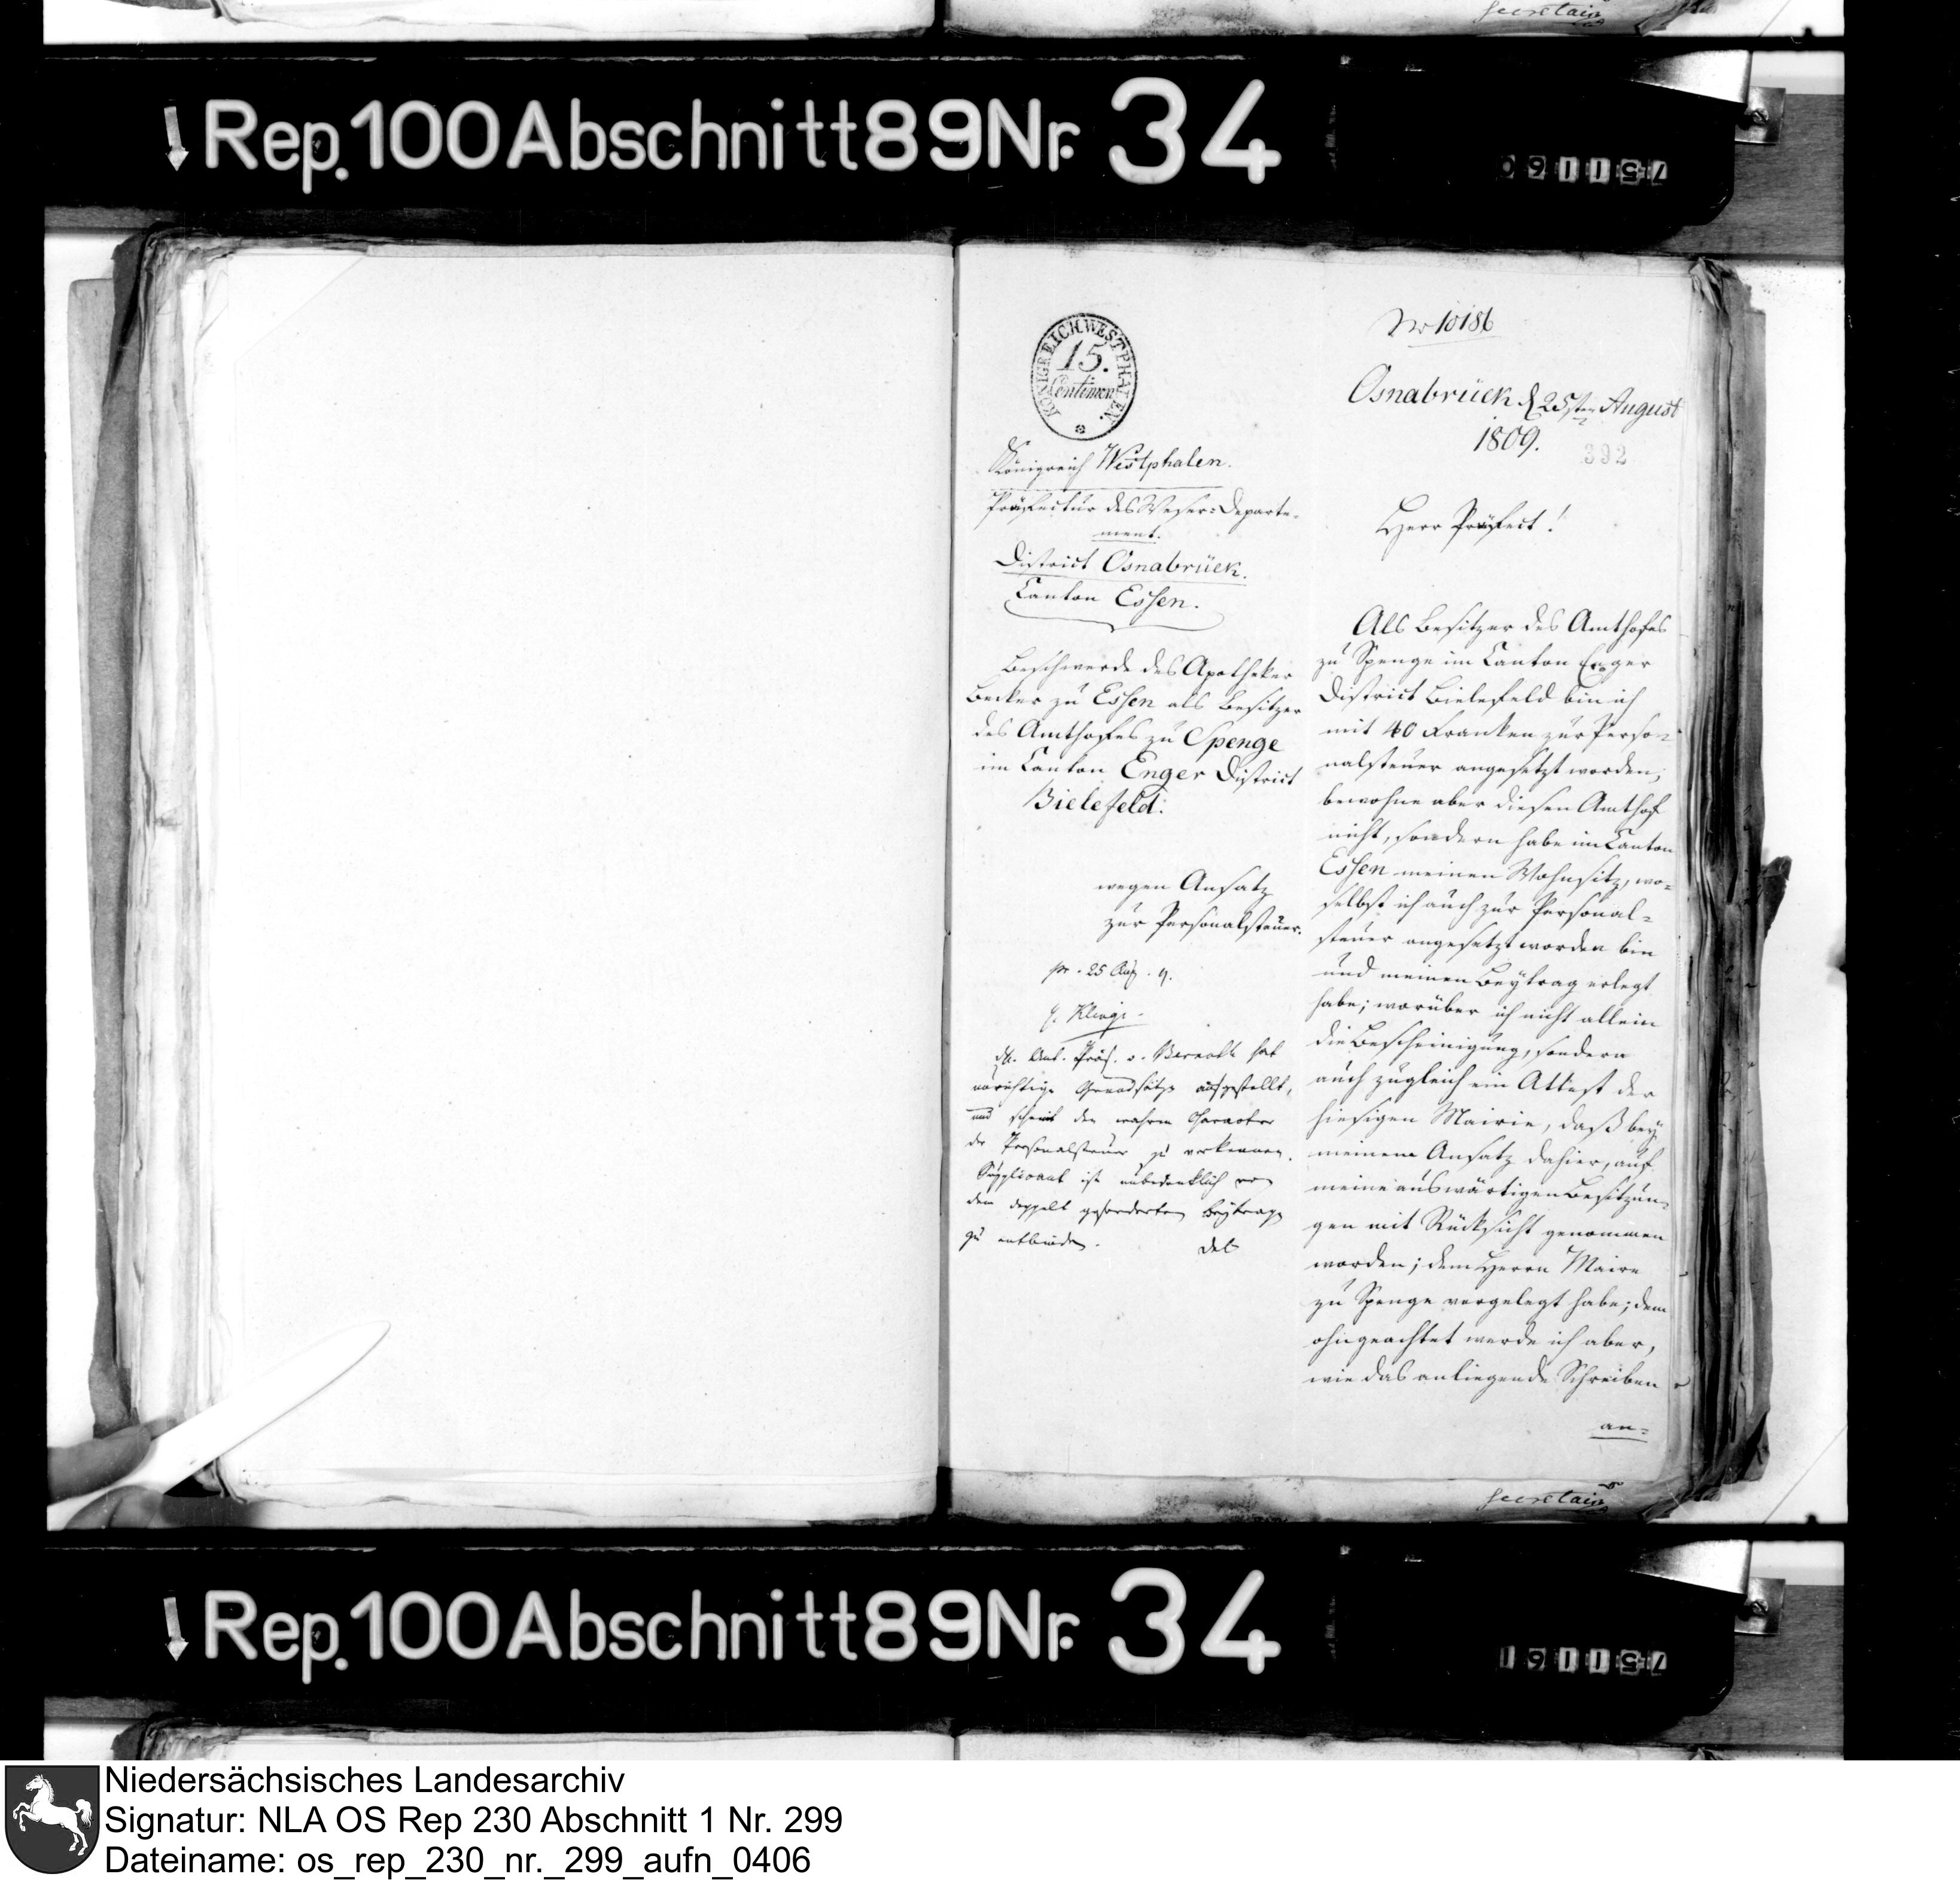 Secretair
Rep. 100 Abschnitt 89 Nr. 34
751160
KÖNIGREICH WESTPHALEN.
15.
Centimen
Königreich Westphalen.
Präfectur des Weser-Departe-
ment.
District Osnabrück.
Canton Essen.
Beschwerde des Apotheker
Becker zu Essen als Besitzer
des Amthofes zu Spenge
im Canton Enger District
Bielefeld:
wegen Ansatz
zur Personalsteuer.
pr. 25 Aug. 9.
H. Unt. Präf. v. hat
unrichtige Grundsätze aufgestellt,
und scheint den wahren Character
der Personalsteuer zu verkennen.
Supplicant ist unbedenklich von
dem doppelt geforderten Beytrage
zu entbinden.
Nr 10186
Osnabrück d 25sten August
1809.
392
Herr Präfect!
Als Besitzer des Amthofes
zu Spenge im Canton Enger
District Bielefeld bin ich
mit 40 Franken zur Perso-
nalsteuer angesetzt worden;
bewohne aber diesen Amthof
nicht, sondern habe im Canton
Essen meinen Wohnsitz, wo-
selbst ich auch zur Personal-
steuer angesetzt worden bin
und meinen Beytrag erlegt
habe; worüber ich nicht allein
die Bescheinigung, sondern
auch zugleich ein Attest der
hiesigen Mairie, daß bey
meinem Ansatz dahier, auf
meine auswärtigen Besitzun-
gen mit Rücksicht genommen
worden; dem Herrn Maire
zu Spenge vorgelegt habe; dem
ohngeachtet werde ich aber,
wie das anliegende Schreiben
an-
Secretair
Rep. 100 Abschnitt 89 Nr. 34
751161
Niedersächsisches Landesarchiv
Signatur: NLA OS Rep 230 Abschnitt 1 Nr. 299
Dateiname: os_rep_230_nr._299_aufn_0406